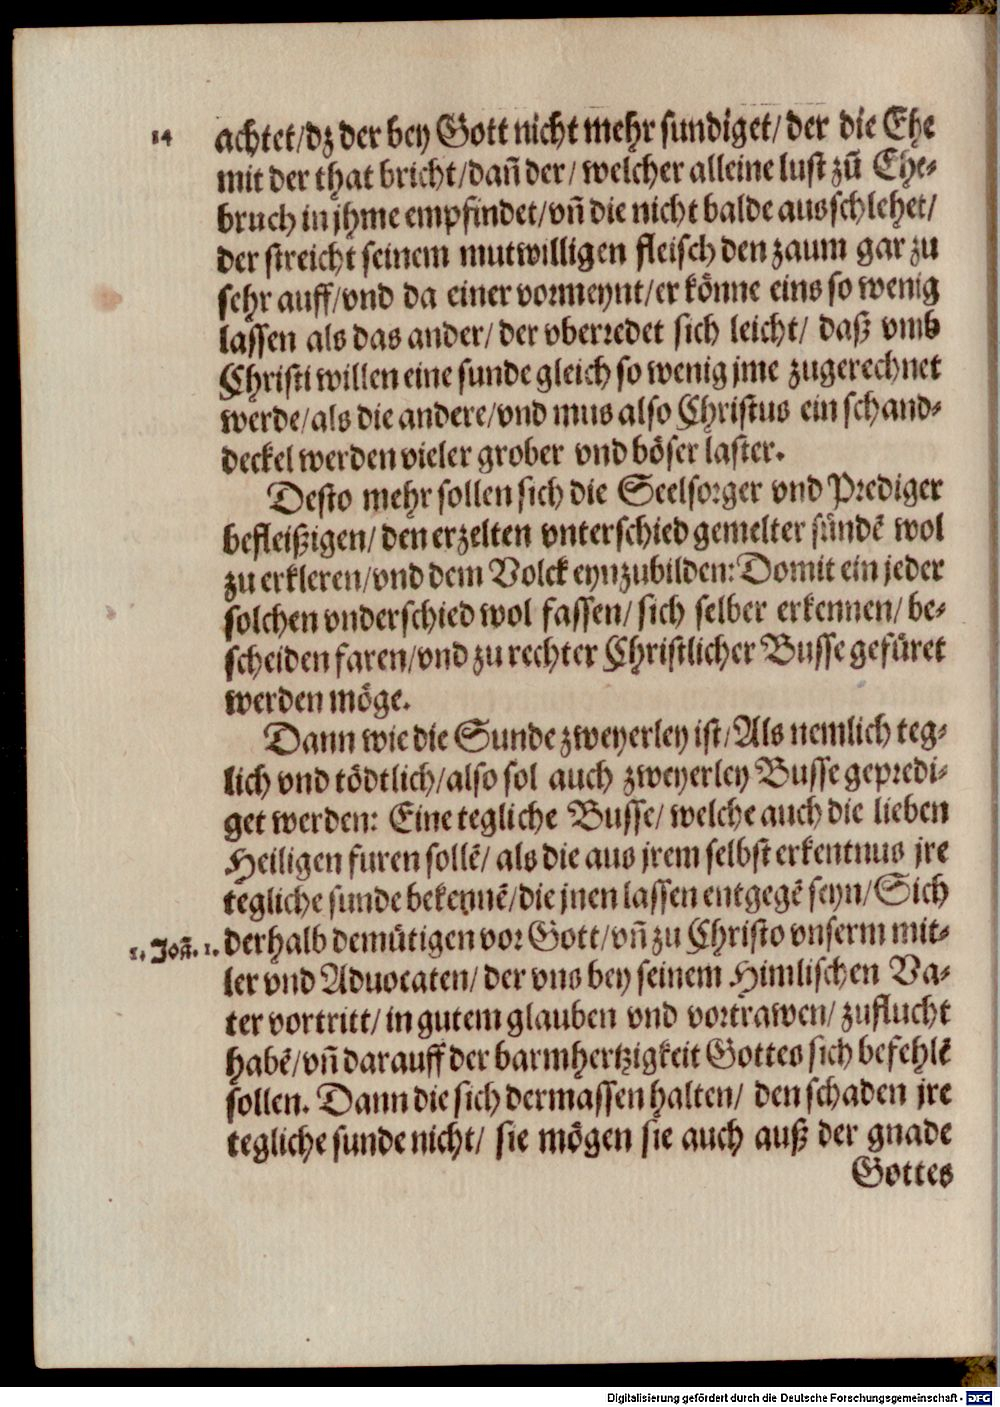 14 achtet/dz der bey Gott nicht mehr sundiget/ der die Ehe
mit der that bricht/dañ der/ welcher alleine lust zũ Ehe-
bruch in jhme empfindet/vñ die nicht balde ausschlehet/
der streicht seinem mutwilligen fleisch den zaum gar zu
sehr auff/vnd da einer vormeynt/er könne eins so wenig
lassen als das ander/ der vberredet sich leicht/ daß vmb
Christi willen eine sunde gleich so wenig jme zugerechnet
werde/als die andere/vnd mus also Christus ein schand-
deckel werden vieler grober vnd böser laster.
Desto mehr sollen sich die Seelsorger vnd Prediger
befleißigen/ den erzelten vnterschied gemelter sündẽ wol
zu erkleren/vnd dem Volck eynzubilden: Domit ein jeder
solchen vnderschied wol fassen/ sich selber erkennen/ be-
scheiden faren/vnd zu rechter Christlicher Busse gefüret
werden möge.
Dann wie die Sunde zweyerley ist/Als nemlich teg-
lich vnd tödtlich/also sol auch zweyerley Busse gepredi-
get werden: Eine tegliche Busse/ welche auch die lieben
Heiligen furen sollẽ/ als die aus jrem selbst erkentnus jre
tegliche sunde bekennẽ/die jnen lassen entgegẽ seyn/Sich
1. Joñ. 1. derhalb demütigen vor Gott/vñ zu Christo vnserm mit-
ler vnd Aduocaten/ der vns bey seinem Himlischen Va-
ter vortritt/ in gutem glauben vnd vortrawen/ zuflucht
habẽ/vñ darauff der barmhertzigkeit Gottes sich befehlẽ
sollen. Dann die sich dermassen halten/ den schaden jre
tegliche sunde nicht/ sie mögen sie auch auß der gnade
Gottes
Digitalisierung gefördert durch die Deutsche Forschungsgemeinschaft - DFG